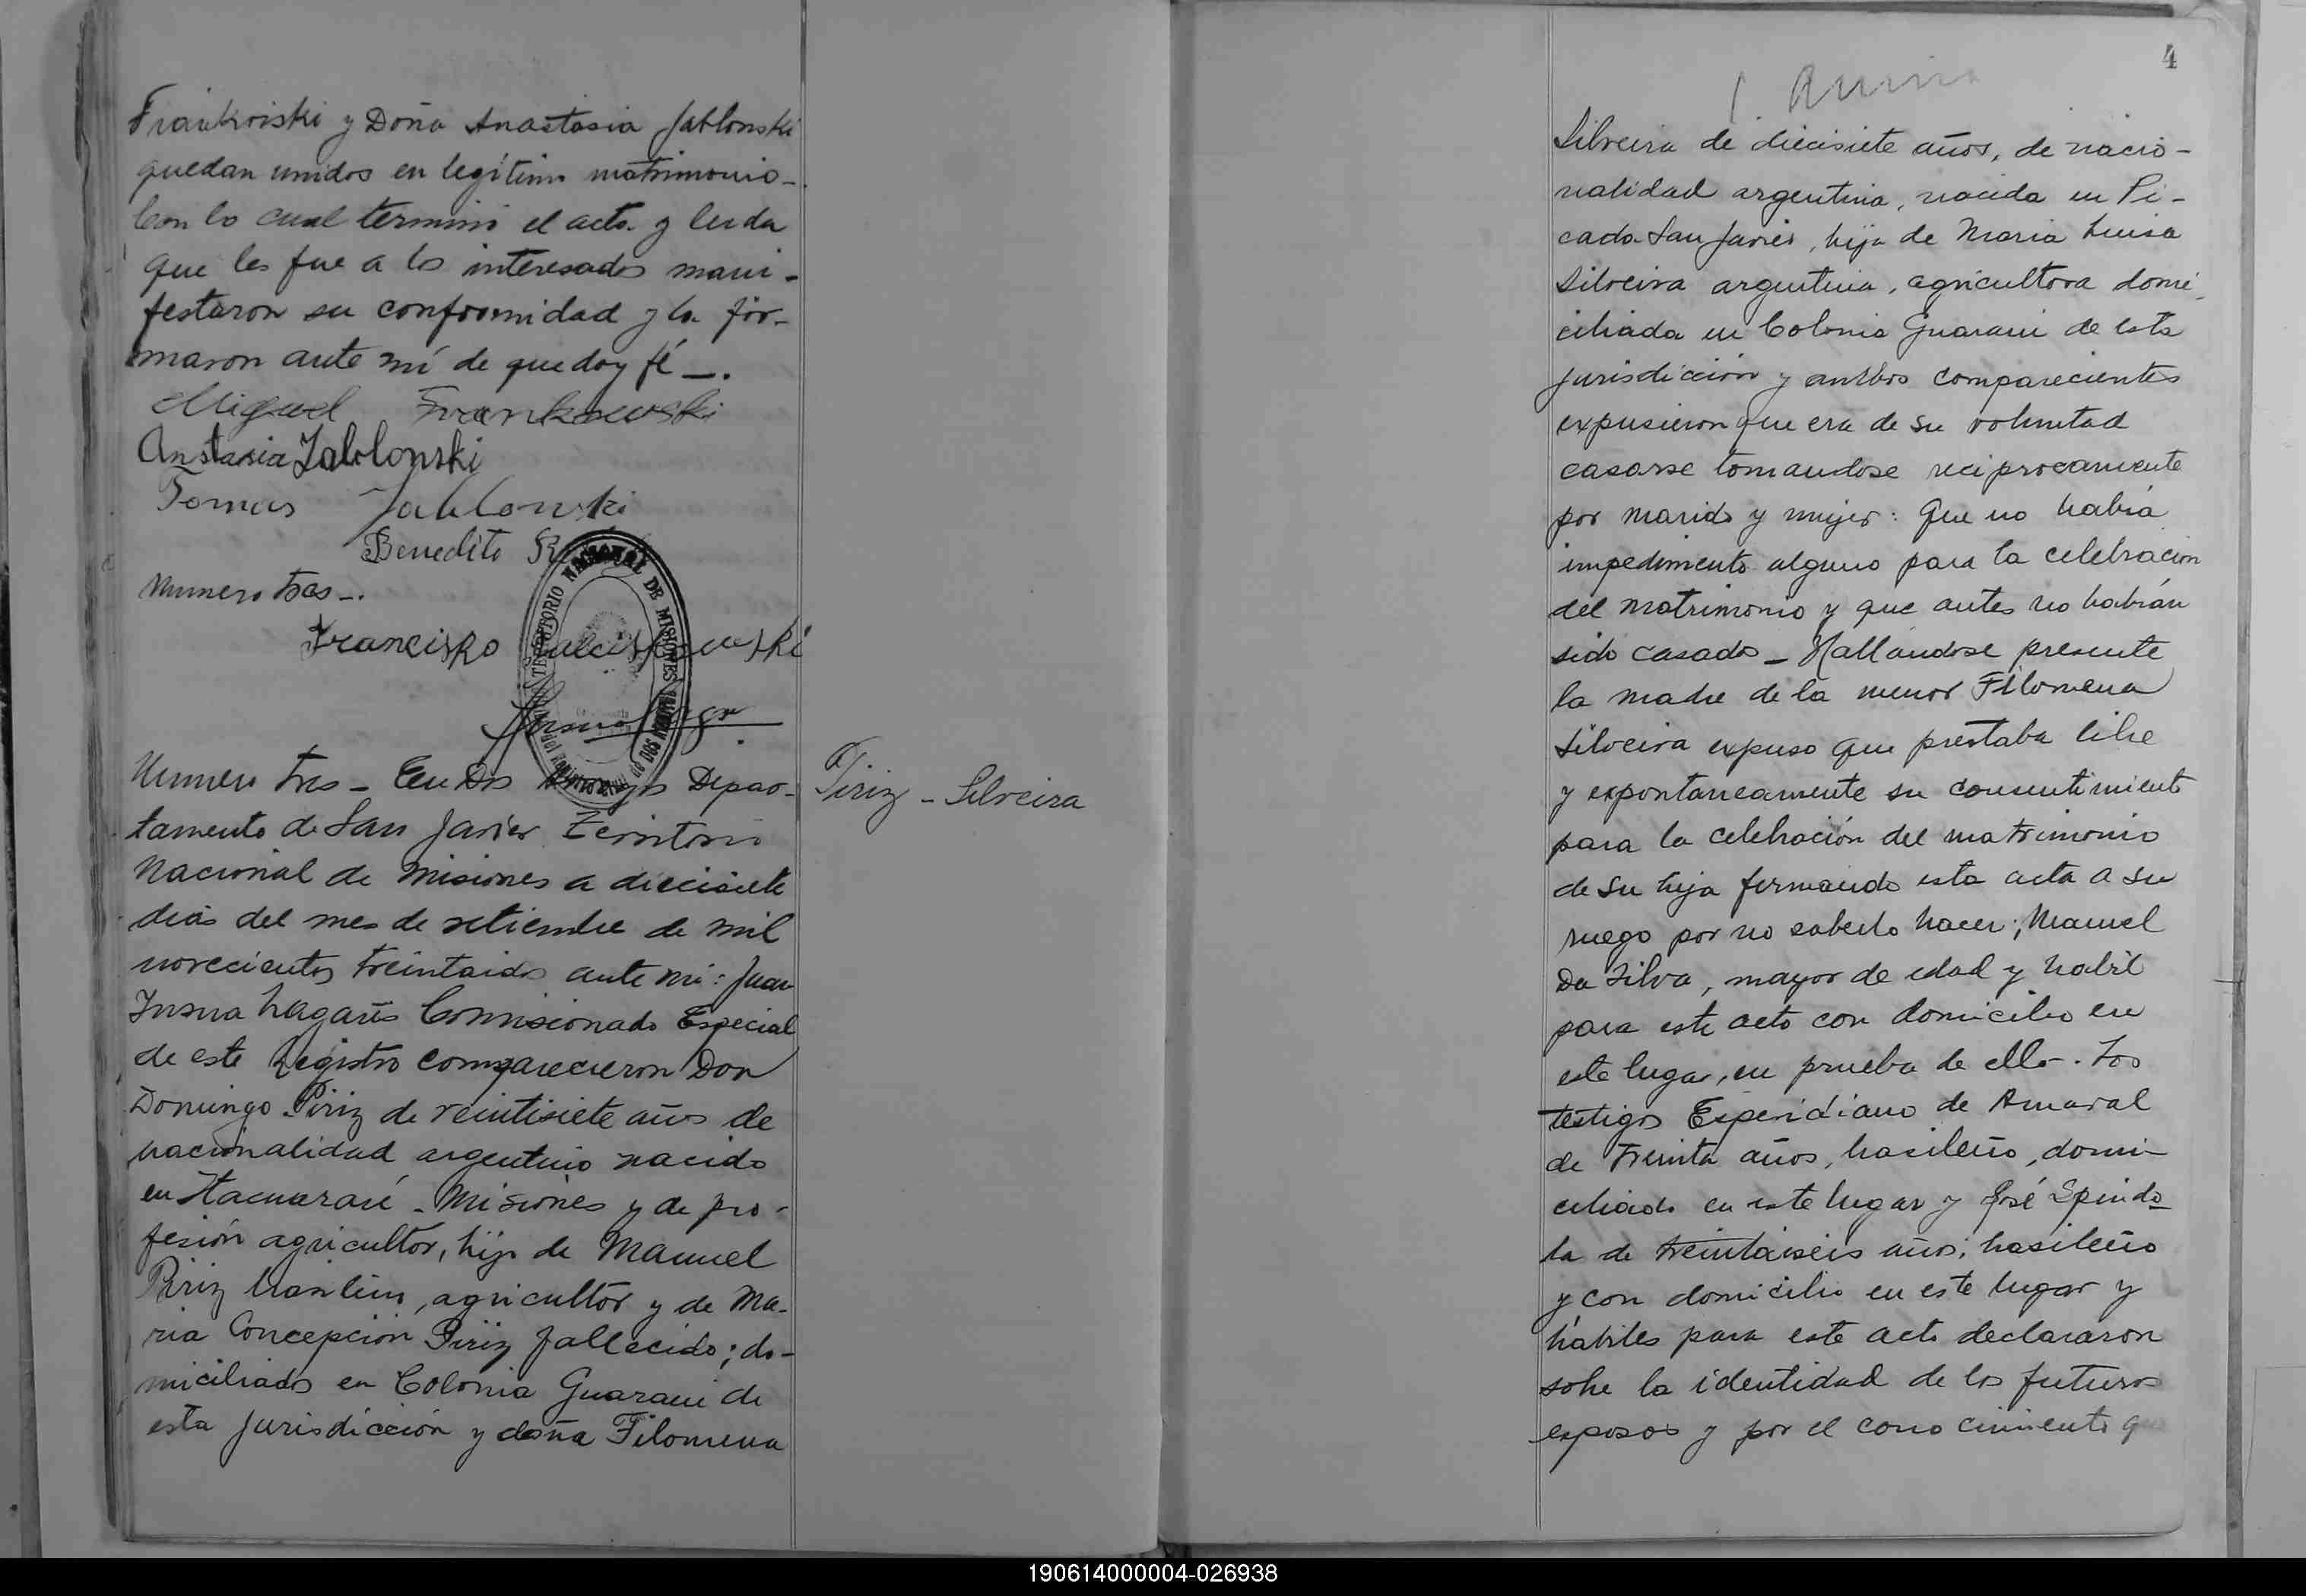 Frankoiski y Doña Anastasia Jablonski
quedan unidos en legítimo matrimonio-
Con lo cual terminó el acto y leida
que les fue a los interesados mani-
festaron su conformidad y la fir-
maron ante mí de que doy fé -.
Miguel Frankowski
Anstasia Jablonski
Tomas Jablonski
Benedito
Numero tres-.
Francisko
TERRITORIO NACIONAL DE MISIONES
Numero tres - En Dos Arroyos Depar-
Piriz - Silveira
tamento de San Javier Territorio
Nacional de Misiones a diecisiete
dias del mes de setiembre de mil
novecientos treintaidos ante mi: Juan
Insua Lagares Comisionado Especial
de este Registro comparecieron Don
Domingo Piriz de veintisiete años de
nacionalidad argentino nacido
en Itacuararé - Misiones y de pro-
fesión agricultor, hijo de Manuel
Piriz brasilero, agricultor y de Ma-
ria Concepción Piriz fallecido; do-
miciliado en Colonia Guarani de
esta jurisdicción y doña Filomena
4
Silveira de diecisiete años, de nacio-
nalidad argentina, nacida en Pi-
cada San Javier, hija de Maria Luisa
Silveira argentina, agricultora domi-
ciliada en Colonia Guarani de esta
jurisdicción y ambos comparecientes
expusieron que era de su voluntad
casarse tomandose reciprocamente
por marido y mujer: Que no había
impedimento alguno para la celebración
del matrimonio y que antes no habían
sido casados - Hallandose presente
la madre de la menor Filomena
Silveira expuso que prestaba libre
y expontaneamente su consentimiento
para la celebración del matrimonio
de su hija firmando esta acta a su
ruego por no saberlo hacer; Manuel
Da Silva, mayor de edad y habil
para este acto con domicilio en
este lugar, en prueba de ello-. Los
testigos Esperidiano de Amaral
de treinta años, brasileño, domi-
ciliado en este lugar y José Spindo-
la de treintaiseis años; brasileño
y con domicilio en este lugar y
hábiles para este acto declararon
sobre la identidad de los futuros
esposos y por el conocimiento
190614000004-026938